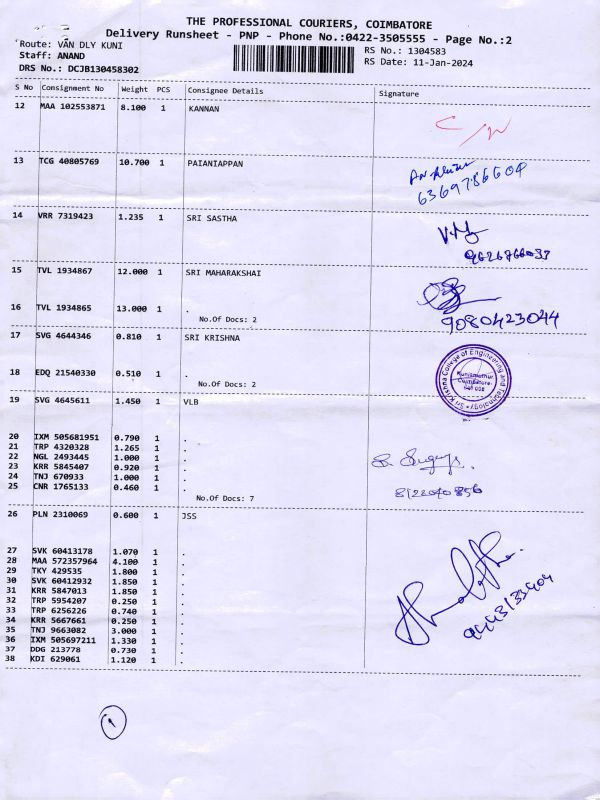 THE PROFESSIONAL COURIERS, COIMBATORE
Delivery Runsheet - PNP - Phone No.:0422-3505555 - Page No.:2
Route: VAN DLY KUNI
RS No.: 1304583
Staff: ANAND
RS Date: 11-Jan-2024
DRS No.: DCJB130458302
S No Consignment No Weight PCS Consignee Details Signature
12 MAA 102553871 8.100 1 KANNAN
13 TCG 40805769 10.700 1 PAIANIAPPAN
6369786604
14 VRR 7319423 1.235 1 SRI SASTHA
15 TVL 1934867 12.000 1 SRI MAHARAKSHAI
16 TVL 1934865 13.000 1 .
No.Of Docs: 2
9080423044
17 SVG 4644346 0.810 1 SRI KRISHNA
Sri Krishna College of Engineering and Technology
Kuniamuthur
Coimbatore
641 008
18 EDQ 21540330 0.510 1 .
No.Of Docs: 2
19 SVG 4645611 1.450 1 VLB
20 IXM 505681951 0.790 1 .
21 TRP 4320328 1.265 1 .
22 NGL 2493445 1.000 1 .
23 KRR 5845407 0.920 1 .
24 TNJ 670933 1.000 1 .
25 CNR 1765133 0.460 1 .
No.Of Docs: 7
8122040856
26 PLN 2310069 0.600 1 JSS
27 SVK 60413178 1.070 1 .
28 MAA 572357964 4.100 1 .
29 TKY 429535 1.800 1 .
30 SVK 60412932 1.850 1 .
31 KRR 5847013 1.850 1 .
32 TRP 5954207 0.250 1 .
33 TRP 6256226 0.740 1 .
34 KRR 5667661 0.250 1 .
35 TNJ 9663082 3.000 1 .
36 IXM 505697211 1.330 1 .
37 DDG 213778 0.730 1 .
38 KDI 629061 1.120 1 .